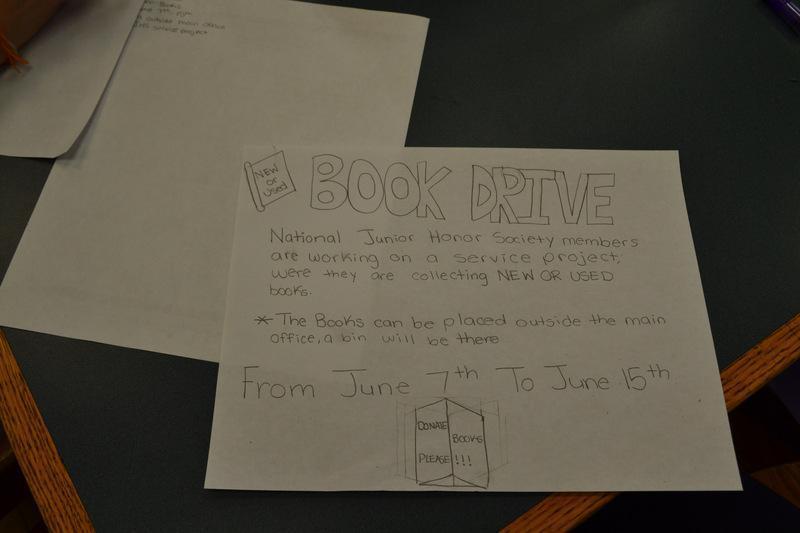 NEW
or
used
BOOK DRIVE
National Junior Honor Society members
are working on a service project;
were they are collecting NEW OR USED
books.
* The Books can be placed outside the main
office, a bin will be there
From June 7th To June 15th
DONATE
PLEASE
BOOKS
!!!
Books
outside main office
project